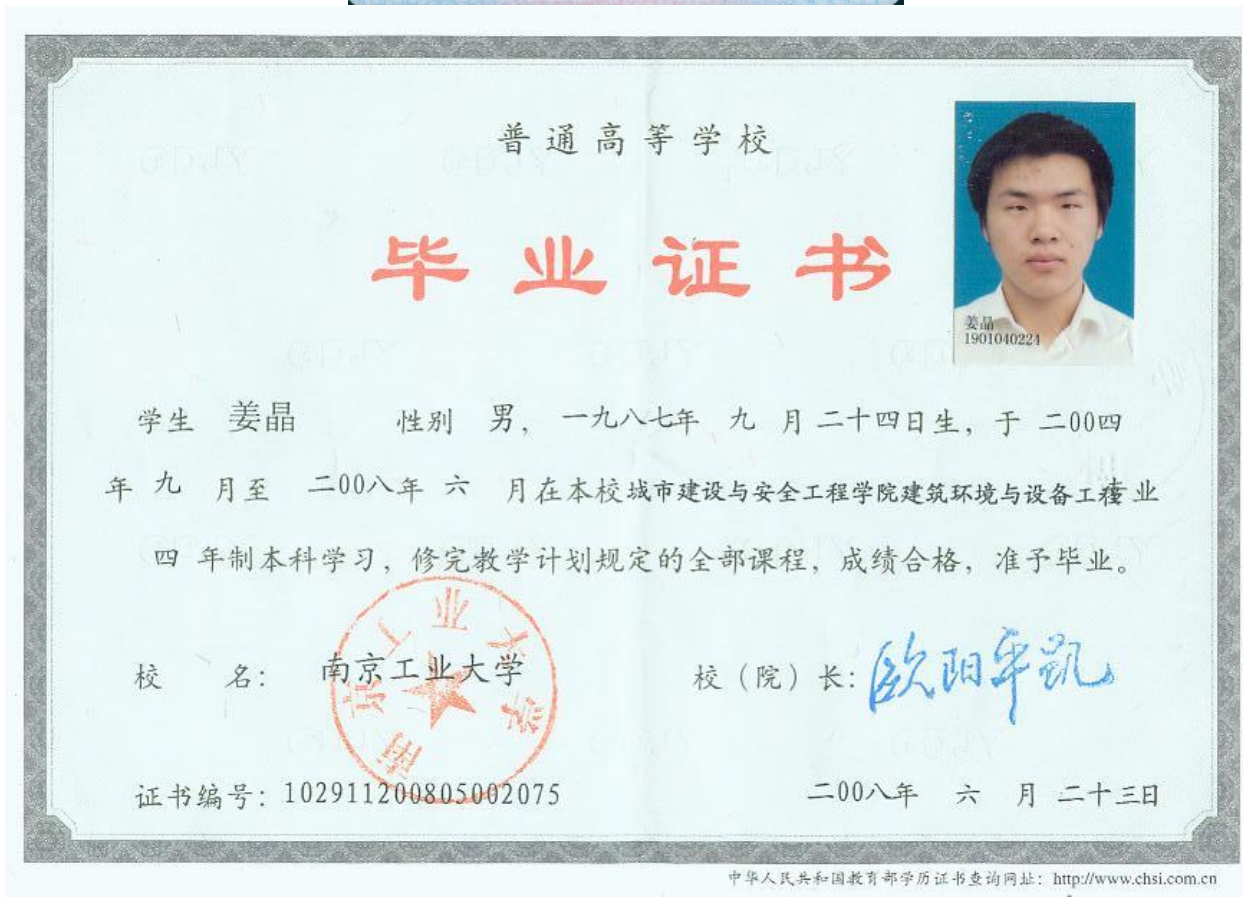 普通高等学校
毕业证书
姜晶
1901040224
学生 姜晶 性别 男，一九八七年 九 月二十四日生，于 二00四
年 九 月至 二00八年 六 月在本校城市建设与安全工程学院建筑环境与设备工程专业
四 年制本科学习，修完教学计划规定的全部课程，成绩合格，准予毕业。
校 名：南京工业大学 校（院）长：欧阳平凯
南京工业大学
证书编号：102911200805002075 二00八年 六 月 二十三日
中华人民共和国教育部学历证书查询网址：http://www.chsi.com.cn